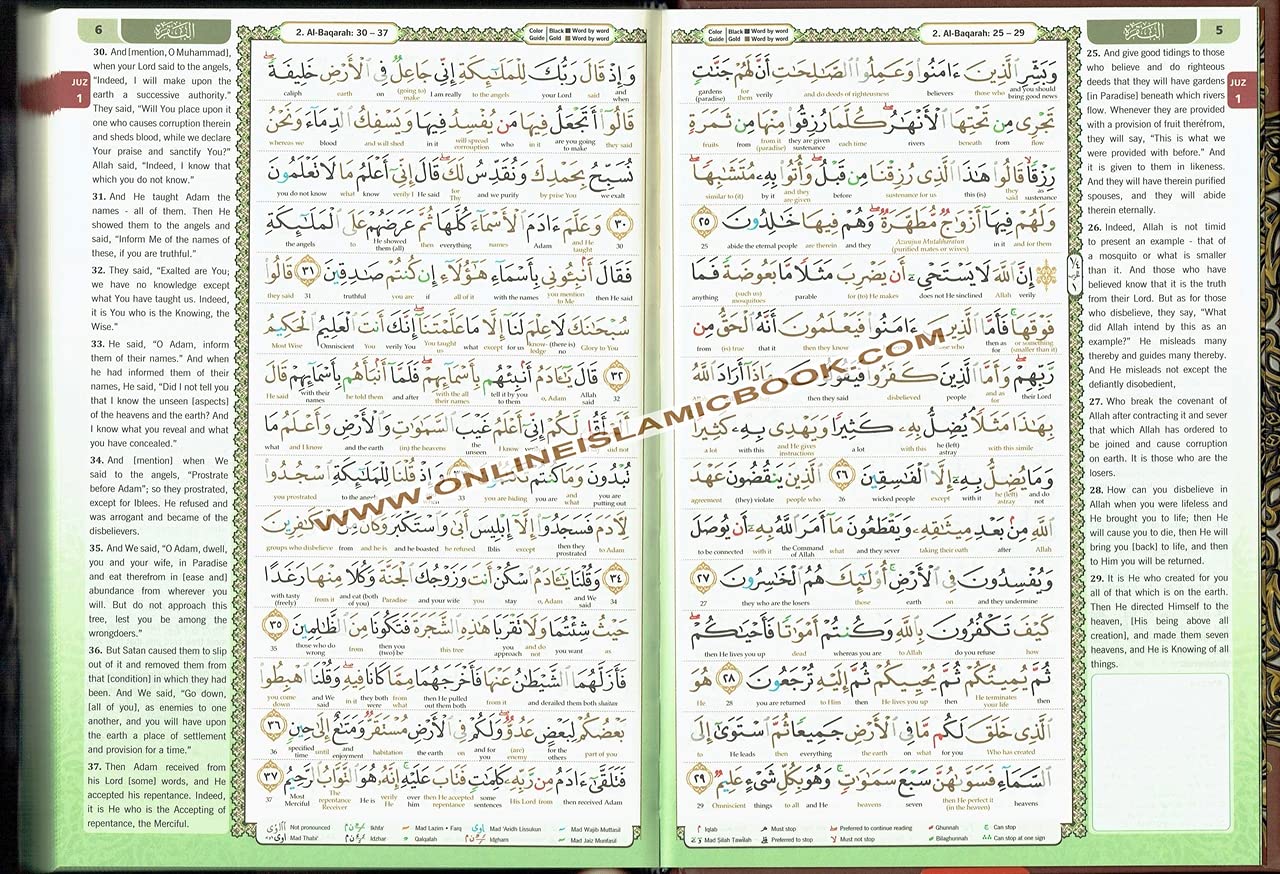 2. Al-Baqarah: 25 – 29
البقرة
5
JUZ
1
Color Guide Black Word by word
Gold Word by word
وَبَشِّرِ الَّذِينَ ءَامَنُوا وَعَمِلُوا الصَّالِحَاتِ أَنَّ لَهُمْ جَنَّاتٍ
gardens (paradise) for them verily and do deeds of righteousness believers those who and you should bring good news
تَجْرِى مِن تَحْتِهَا الْأَنْهَارُ كُلَّمَا رُزِقُوا مِنْهَا مِن ثَمَرَةٍ
fruits from from it (paradise) they are given sustenance each time rivers beneath from flow
رِزْقًا قَالُوا هَٰذَا الَّذِى رُزِقْنَا مِن قَبْلُ وَأُتُوا بِهِ مُتَشَابِهًا
similar to (it) by it and they are given before sustenance for us this (is) they said as sustenance
وَلَهُمْ فِيهَا أَزْوَاجٌ مُّطَهَّرَةٌ وَهُمْ فِيهَا خَالِدُونَ ٢٥
25 abide the eternal people are therein and they Azwajun Mutahharatun (purified mates or wives) in it and for them
إِنَّ اللَّهَ لَا يَسْتَحْىِ أَن يَضْرِبَ مَثَلًا مَّا بَعُوضَةً فَمَا
anything (such us) mosquitoes parable for (to) He makes does not He sinclined Allah verily
فَوْقَهَا فَأَمَّا الَّذِينَ ءَامَنُوا فَيَعْلَمُونَ أَنَّهُ الْحَقُّ مِن
from (is) true that it then they know who then as for or something (smaller than it)
رَّبِّهِمْ وَأَمَّا الَّذِينَ كَفَرُوا فَيَقُولُونَ مَاذَا أَرَادَ اللَّهُ
Allah then they said disbelieved people and as for their Lord
بِهَٰذَا مَثَلًا يُضِلُّ بِهِ كَثِيرًا وَيَهْدِى بِهِ كَثِيرًا
a lot with this and He gives instructions a lot with this he (left) astray with this simile
وَمَا يُضِلُّ بِهِ إِلَّا الْفَاسِقِينَ ٢٦ الَّذِينَ يَنقُضُونَ عَهْدَ
agreement (they) violate people who 26 wicked people except with it he (left) astray and do not
اللَّهِ مِن بَعْدِ مِيثَاقِهِ وَيَقْطَعُونَ مَا أَمَرَ اللَّهُ بِهِ أَن يُوصَلَ
to be connected with it the Command of Allah what and they sever taking their eath after Allah
وَيُفْسِدُونَ فِى الْأَرْضِ أُولَٰئِكَ هُمُ الْخَاسِرُونَ ٢٧
27 they who are the losers those earth on and they undermine
كَيْفَ تَكْفُرُونَ بِاللَّهِ وَكُنتُمْ أَمْوَاتًا فَأَحْيَاكُمْ
then He lives you up dead whereas you are to Allah do you refuse how
ثُمَّ يُمِيتُكُمْ ثُمَّ يُحْيِيكُمْ ثُمَّ إِلَيْهِ تُرْجَعُونَ ٢٨ هُوَ
He 28 you are returned to Him then He lives you up then He terminates your life then
الَّذِى خَلَقَ لَكُم مَّا فِى الْأَرْضِ جَمِيعًا ثُمَّ اسْتَوَىٰ إِلَى
to He leads then everything the earth on what for you Who has created
السَّمَاءِ فَسَوَّاهُنَّ سَبْعَ سَمَاوَاتٍ وَهُوَ بِكُلِّ شَىْءٍ عَلِيمٌ ٢٩
29 Omniscient things to all and He heavens seven then He perfect it (in the heaven) heavens
25. And give good tidings to those
who believe and do righteous
deeds that they will have gardens
[in Paradise] beneath which rivers
flow. Whenever they are provided
with a provision of fruit therefrom,
they will say, "This is what we
were provided with before." And
it is given to them in likeness.
And they will have therein purified
spouses, and they will abide
therein eternally.
26. Indeed, Allah is not timid
to present an example - that of
a mosquito or what is smaller
than it. And those who have
believed know that it is the truth
from their Lord. But as for those
who disbelieve, they say, "What
did Allah intend by this as an
example?" He misleads many
thereby and guides many thereby.
And He misleads not except the
defiantly disobedient,
27. Who break the covenant of
Allah after contracting it and sever
that which Allah has ordered to
be joined and cause corruption
on earth. It is those who are the
losers.
28. How can you disbelieve in
Allah when you were lifeless and
He brought you to life; then He
will cause you to die, then He will
bring you [back] to life, and then
to Him you will be returned.
29. It is He who created for you
all of that which is on the earth.
Then He directed Himself to the
heaven, [His being above all
creation], and made them seven
heavens, and He is Knowing of all
things.
Iqlab Must stop Preferred to continue reading Ghunnah Can stop
Mad Silah Tawilah Preferred to stop Must not stop Bilaghunnah Can stop at one sign
6
البقرة
2. Al-Baqarah: 30 – 37
JUZ
1
Color Guide Black Word by word
Gold Word by word
وَإِذْ قَالَ رَبُّكَ لِلْمَلَٰئِكَةِ إِنِّى جَاعِلٌ فِى الْأَرْضِ خَلِيفَةً
caliph earth on (going to) make I am really to the angels your Lord said and when
قَالُوا أَتَجْعَلُ فِيهَا مَن يُفْسِدُ فِيهَا وَيَسْفِكُ الدِّمَاءَ وَنَحْنُ
whereas we blood and will shed in it will spread corruption who in it are you going to make they said
نُسَبِّحُ بِحَمْدِكَ وَنُقَدِّسُ لَكَ قَالَ إِنِّى أَعْلَمُ مَا لَا تَعْلَمُونَ
you do not know what know verily I He said for Thy and we purify by prise You we exalt
٣٠ وَعَلَّمَ ءَادَمَ الْأَسْمَاءَ كُلَّهَا ثُمَّ عَرَضَهُمْ عَلَى الْمَلَٰئِكَةِ
the angels to He showed them (all) then everything names Adam and He taught 30
فَقَالَ أَنبِئُونِى بِأَسْمَاءِ هَٰؤُلَاءِ إِن كُنتُمْ صَادِقِينَ ٣١ قَالُوا
they said 31 truthful you are if all of it with the names you mention to Me then He said
سُبْحَٰنَكَ لَا عِلْمَ لَنَا إِلَّا مَا عَلَّمْتَنَا إِنَّكَ أَنتَ الْعَلِيمُ الْحَكِيمُ
Most Wise Omniscient You verily You You taught us what except for us know- (there is) ledge no Glory to You
٣٢ قَالَ يَٰـَٔادَمُ أَنبِئْهُم بِأَسْمَائِهِمْ فَلَمَّا أَنبَأَهُم بِأَسْمَائِهِمْ قَالَ
He said with their names he told them and after with the all their names tell it by you to them o, Adam Allah said 32
أَلَمْ أَقُل لَّكُمْ إِنِّى أَعْلَمُ غَيْبَ السَّمَٰوَٰتِ وَالْأَرْضِ وَأَعْلَمُ مَا
what and I know and the earth (in) the heavens the unseen I know
تُبْدُونَ وَمَا كُنتُمْ تَكْتُمُونَ وَإِذْ قُلْنَا لِلْمَلَٰئِكَةِ اسْجُدُوا
you prostrated to the 33 you are hiding you are and what you are putting out
لِءَادَمَ فَسَجَدُوا إِلَّا إِبْلِيسَ أَبَىٰ وَاسْتَكْبَرَ وَكَانَ مِنَ الْكَٰفِرِينَ
groups who disbelieve from and he is and he boasted he refused Iblis except then they prostrated to Adam
٣٤ وَقُلْنَا يَٰـَٔادَمُ اسْكُنْ أَنتَ وَزَوْجُكَ الْجَنَّةَ وَكُلَا مِنْهَا رَغَدًا
with tasty (freely) from it and eat (both of you) Paradise and your wife you stay o, Adam and We said 34
حَيْثُ شِئْتُمَا وَلَا تَقْرَبَا هَٰذِهِ الشَّجَرَةَ فَتَكُونَا مِنَ الظَّٰلِمِينَ ٣٥
35 those who do wrong from then you (two) be this tree you approach and do not you want as
فَأَزَلَّهُمَا الشَّيْطَٰنُ عَنْهَا فَأَخْرَجَهُمَا مِمَّا كَانَا فِيهِ وَقُلْنَا اهْبِطُوا
you come down and We said in it they both were from what then He pulled out them both from it and derailed them both shaitan
بَعْضُكُمْ لِبَعْضٍ عَدُوٌّ وَلَكُمْ فِى الْأَرْضِ مُسْتَقَرٌّ وَمَتَٰعٌ إِلَىٰ حِينٍ ٣٦
36 specified time until and enjoyment habitation the earth on and for you (are) enemy for the others part of you
فَتَلَقَّىٰ ءَادَمُ مِن رَّبِّهِ كَلِمَٰتٍ فَتَابَ عَلَيْهِ إِنَّهُ هُوَ التَّوَّابُ الرَّحِيمُ ٣٧
37 Most Merciful The repentance Receiver He is verily He over him then He accepted repentance some sentences His Lord from then received Adam
30. And [mention, O Muhammad],
when your Lord said to the angels,
"Indeed, I will make upon the
earth a successive authority."
They said, "Will You place upon it
one who causes corruption therein
and sheds blood, while we declare
Your praise and sanctify You?"
Allah said, "Indeed, I know that
which you do not know."
31. And He taught Adam the
names - all of them. Then He
showed them to the angels and
said, "Inform Me of the names of
these, if you are truthful."
32. They said, "Exalted are You;
we have no knowledge except
what You have taught us. Indeed,
it is You who is the Knowing, the
Wise."
33. He said, "O Adam, inform
them of their names." And when
he had informed them of their
names, He said, "Did I not tell you
that I know the unseen [aspects]
of the heavens and the earth? And
I know what you reveal and what
you have concealed."
34. And [mention] when We
said to the angels, "Prostrate
before Adam"; so they prostrated,
except for Iblees. He refused and
was arrogant and became of the
disbelievers.
35. And We said, "O Adam, dwell,
you and your wife, in Paradise
and eat therefrom in [ease and]
abundance from wherever you
will. But do not approach this
tree, lest you be among the
wrongdoers."
36. But Satan caused them to slip
out of it and removed them from
that [condition] in which they had
been. And We said, "Go down,
[all of you], as enemies to one
another, and you will have upon
the earth a place of settlement
and provision for a time."
37. Then Adam received from
his Lord [some] words, and He
accepted his repentance. Indeed,
it is He who is the Accepting of
repentance, the Merciful.
Not pronounced Ikhfa' Mad Lazim • Farq Mad 'Aridh Lissukun Mad Wajib Muttasil
Mad Thabi' Idzhar Qalqalah Idgham Mad Jaiz Munfasil
WWW.ONLINEISLAMICBOOK.COM